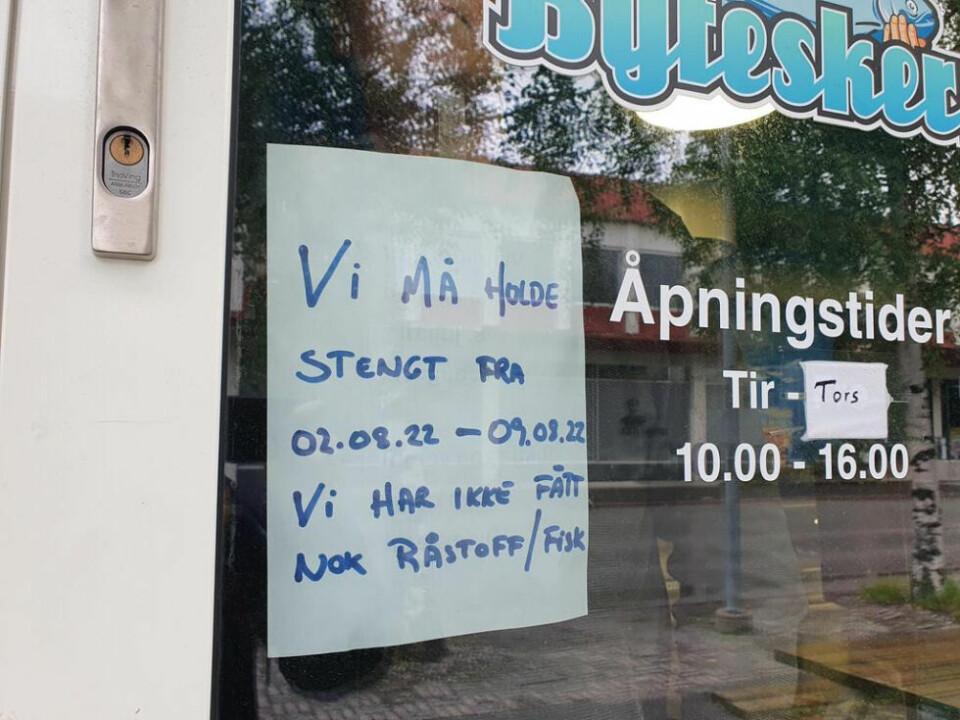 Byteskere
VI MÅ HOLDE
STENGT FRA
02.08.22 – 09.08.22
VI HAR IKKE FÅTT
NOK RÅSTOFF/FISK
Åpningstider
Tir - Tors
10.00 - 16.00
TrioVing